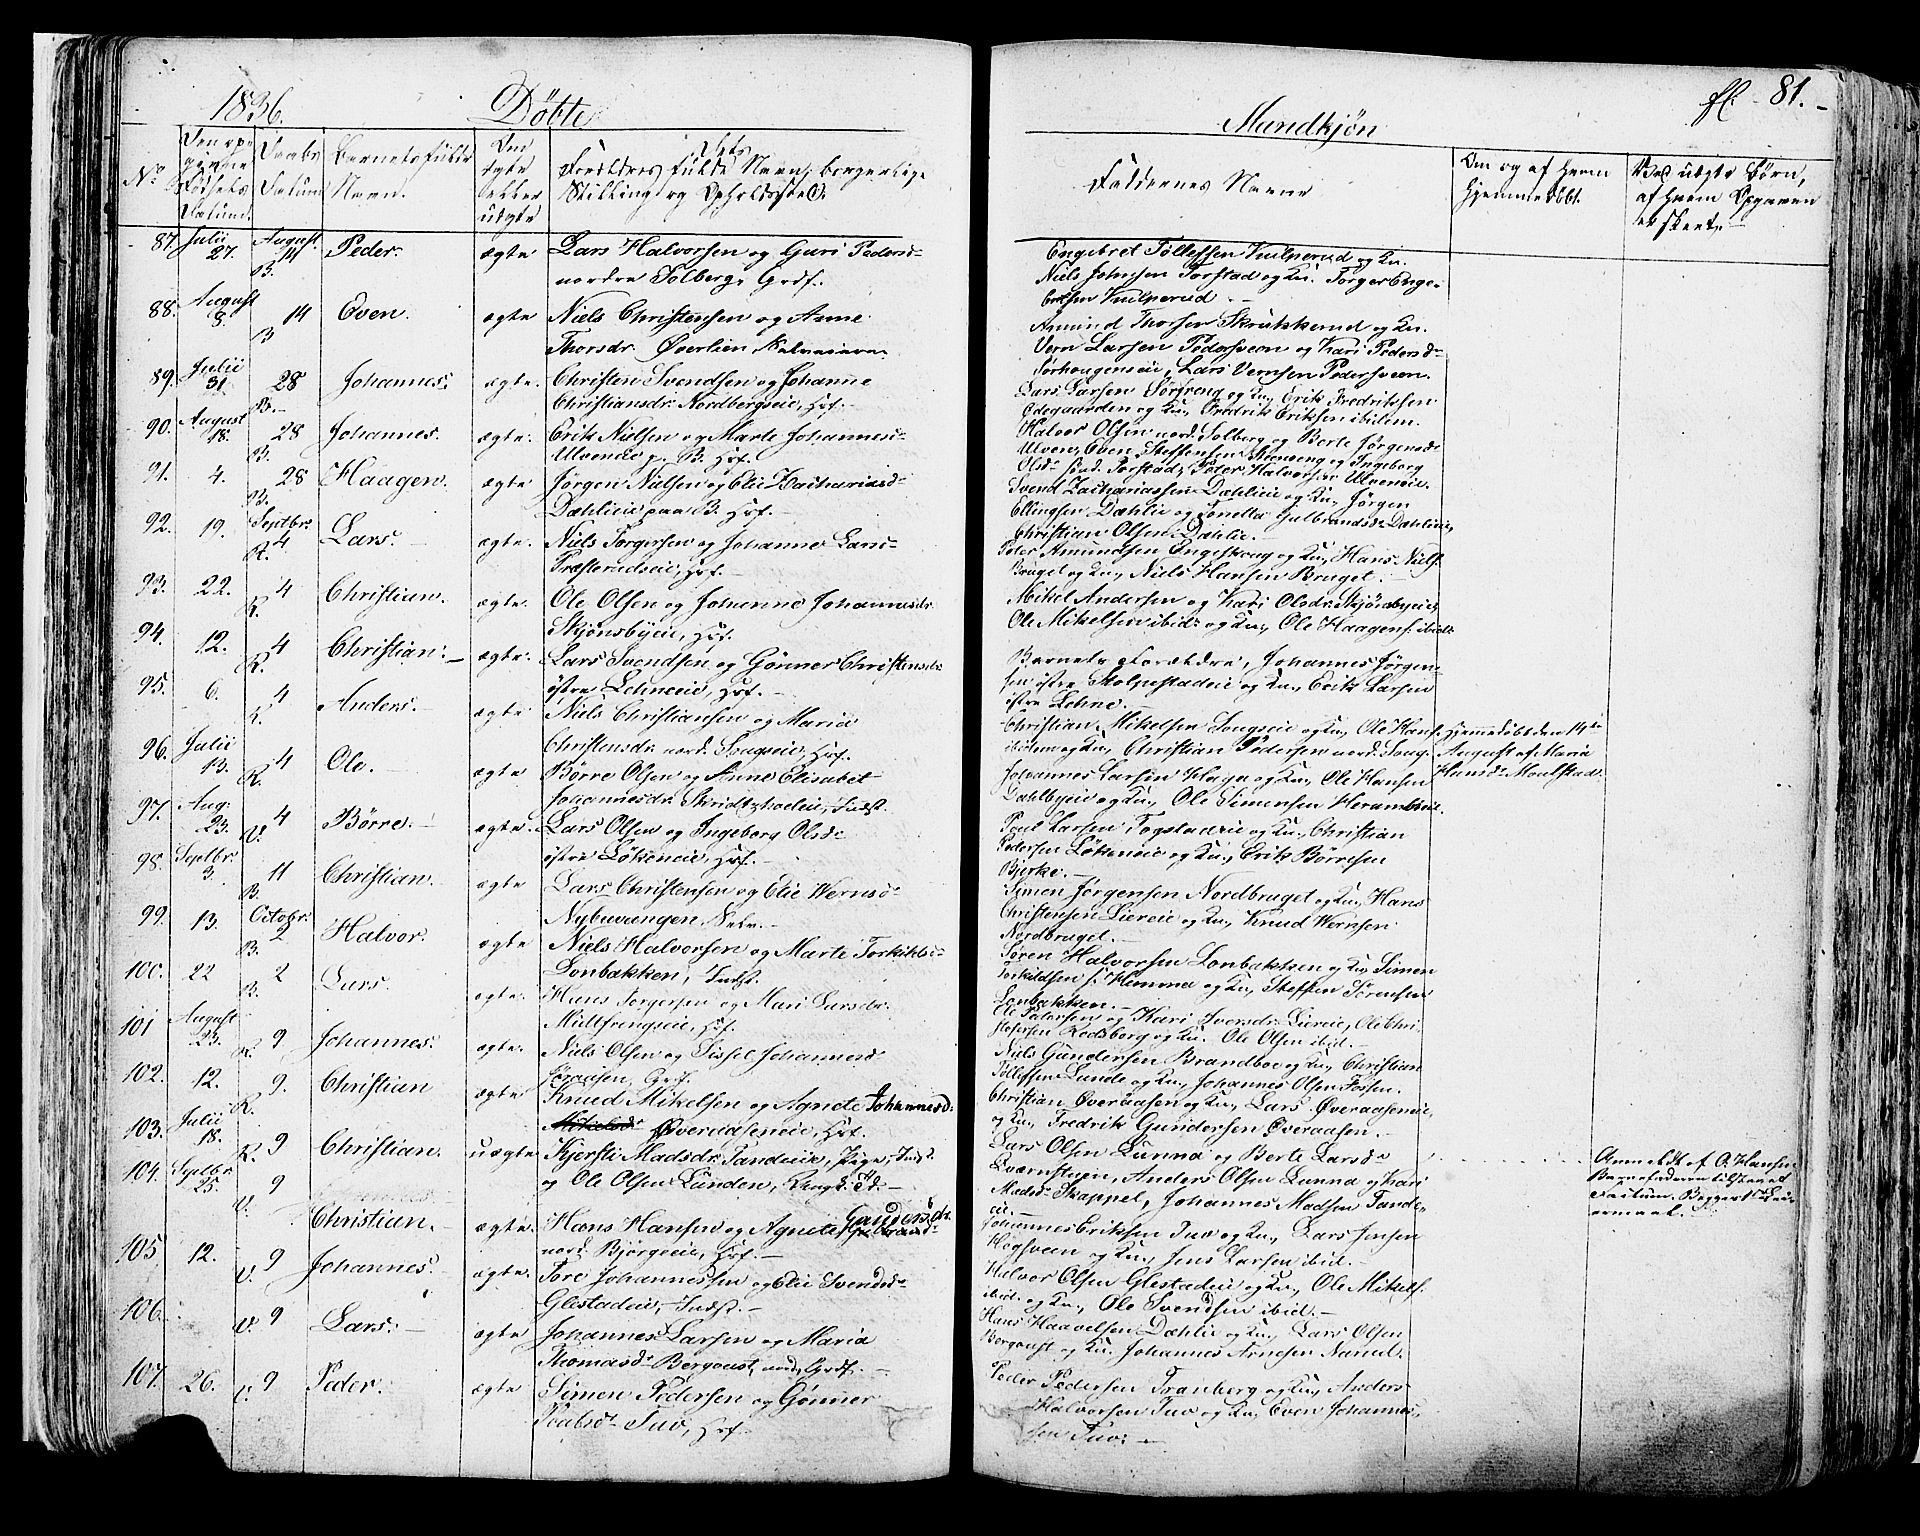 1836.
Döbte
Mandkjøn
fl. 81.
No
Den opgivne Fødsels Datum.
Daabs Datum
Barnets fulde Navn.
Om ægte eller uægte
Forældres fulde Navn, borgerlige Stilling og Opholdssted.
Faddernes Navne
Om og af hvem hjemmedøbt.
Ved uægte Børn, af hvem Opgaven er skeet.
87. Julii 27. August 14 B. Peder. ægte Lars Halvorsen og Guri Pedersd.
nordre Solberg, Grdf.
Engebret Tollefsen og Ku.
Niels Johnsen Torstad og Ku. Torger Enge-
bretsen
88. August 8. 14 B Even. ægte Niels Christensen og Anne
Thorsdr. Øverlien,
Amund Thorsen Skrukkerud og Ku.
Vern Larsen Pedersveen og Kari Pedersdr
Lars Vernsen Pedersveen.
89. Julii 31. 28 B. Johannes. ægte. Christen Svendsen og Johanne
Christiansdr. Nordbergseie, Huf.
Lars Larsen Sørgreng og Ku, Erik Fredriksen
Ødegaarden og Ku, Fredrik Eriksen ibidem.
90. August 18. 28 B. Johannes. ægte. Erik Nielsen og Marte Johannesdr
Ulveneie p. B. Huf.
Halvor Olsen nord. Solberg og Berte Jørgensdr
Ulven, Even Steffensen Steenseng og Ingeborg
Olsdr. sønd. Torstad, Peder Halvorsen Ulveneie.
91. 4. 28 B. Haagen. ægte Jørgen Nielsen og Elie Zachariasdr
Dæhlieie paa B. Huf.
Svend Zachariassen Dæhlieie og Ku, Jørgen
Ellingsen Dæhlie og Gulbrandsdr. Dæhlieie,
Christian Olsen Dæhlie.
92. 19. Septbr. 4 R. Lars. ægte. Niels Torgersen og Johanne Larsdr
Præsterudseie, Huf.
Peter Amundsen Engeskoug og Ku, Hans Niels.
Bruget og Ku, Niels Hansen Bruget.
93. 22. 4 R. Christian. ægte. Ole Olsen og Johanne Johannesdr.
Skjønsbyeie, Huf.
Mikel Andersen og Kari Olsdr. Skjønsbyeie,
Ole Mikelsen ibid. og Ku, Ole Haagens. ibid.
94. 12. 4 R. Christian. ægte. Lars Svendsen og Gønner Christensdr
østre Lehneeie, Huf.
Barnets Forældre, Johannes Jørgen-
sen østre Stolpestadeie og Ku, Erik Larsen
østre Lehne.
95. 6. 4 R. Anders. ægte Niels Christiansen og Maria
Christensdr. nord. Sougseie, Huf.
Christian Mikelsen Sougseie og Ku, Ole Hans.
ibidem og Ku, Christian Pedersen nord. Soug.
Hjemmedøbt den 14de
August af Maria
Hansdr. Moulstad.
96. Julii 13. 4 R. Ole. ægte Børre Olsen og Anne Elisabet
Johannesdr. Skridtshoeleie, Indst.
Johannes Larsen Haga og Ku, Ole Hansen
Dæhlbyeie og Ku, Ole Simensen
97. Aug. 23. 4 V. Børre. ægte. Lars Olsen og Ingeborg Olsdr
østre Løkeneie, Huf.
Poul Larsen Fogstadeie og Ku, Christian
Pedersen Løkeneie og Ku, Erik Børresen
Bjerke.
98. Septbr. 3. 11 B. Christian. ægte Lars Christensen og Elie Wernsdr
Nybuvangen, Selv.
Simen Jørgensen Nordbruget og Ku, Hans
Christensen Liereie og Ku, Knud Wernsen
Nordbruget.
99. 13. Octobr. 2 B. Halvor. ægte Niels Halvorsen og Marte Torkildsdr
Lonbakken, Indst.
Søren Halvorsen Lonbakken og Ku, Simen
Torkildsen Hemma og Ku, Steffen Sørensen
Lonbakken.
100. 22 2 B. Lars. ægte. Hans Torgersen og Mari Larsdr.
Midtfrengseie, Huf.
Ole Pedersen og Kari Iversdr. Liereie, Ole Chri-
stofersen Rodsberg og Ku. Ole Olsen ibid.
101 August 23. 9 R. Johannes. ægte. Niels Olsen og Sissel Johannesdr
Søraasen, Grdf.
Niels Gundersen Brandboe og Ku, Christian
Tollefsen Lunde og Ku, Johannes Olsen Fossen.
102. 12. 9. R. Christian ægte Knud Mikelsen og Agnete Johannesdr.
Øveraaseneie, Huf.
Christian Øveraasen og Ku, Lars Øveraaseneie,
og Ku, Fredrik Gundersen Øveraasen.
103. Julii 18. 9 R. Christian. uægte Kjersti Madsdr. Tandeeie, Pige, Indst.
og Ole Olsen Lunden, Ungk.
Lars Olsen Lunna og Berte Larsdr
Qværnstuen, Anders Olsen Lunna og Kari
Madsdr. Skappel, Johannes Madsen Tande-
eie.
Anmeldt af O. Hansen
Barnefaderen tilstaaet
104. Septbr. 25. 9 V. Christian. ægte Hans Hansen og Agnete Gundersdr.
nord. Bjørgeeie, Huf.
Johannes Eriksen Tuv og Ku, Lars Jensen
Høgsveen og Ku, Jens Larsen ibid.
105 12. 9 V. Johannes. ægte. Tore Johannessen og Elie Svendsdr
Glestadeie, Indst.
Halvor Olsen Glestadeie og Ku, Ole Mikels.
ibid. og Ku, Ole Svendsen ibid.
106. 9 V. Lars. ægte Johannes Larsen og Maria
Thomasdr. Bergoust, nord, Grdf.
Hans Haavelsen Dæhlie og Ku, Lars Olsen
Bergoust og Ku. Johannes Arnesen Narud.
107. 26. 9 V. Peder. ægte Simen Pedersen og Gønner
Tuv, Huf.
Peder Pedersen Tranberg og Ku, Anders
Halvorsen Tuv og Ku, Even Johannes-
sen Tuv.